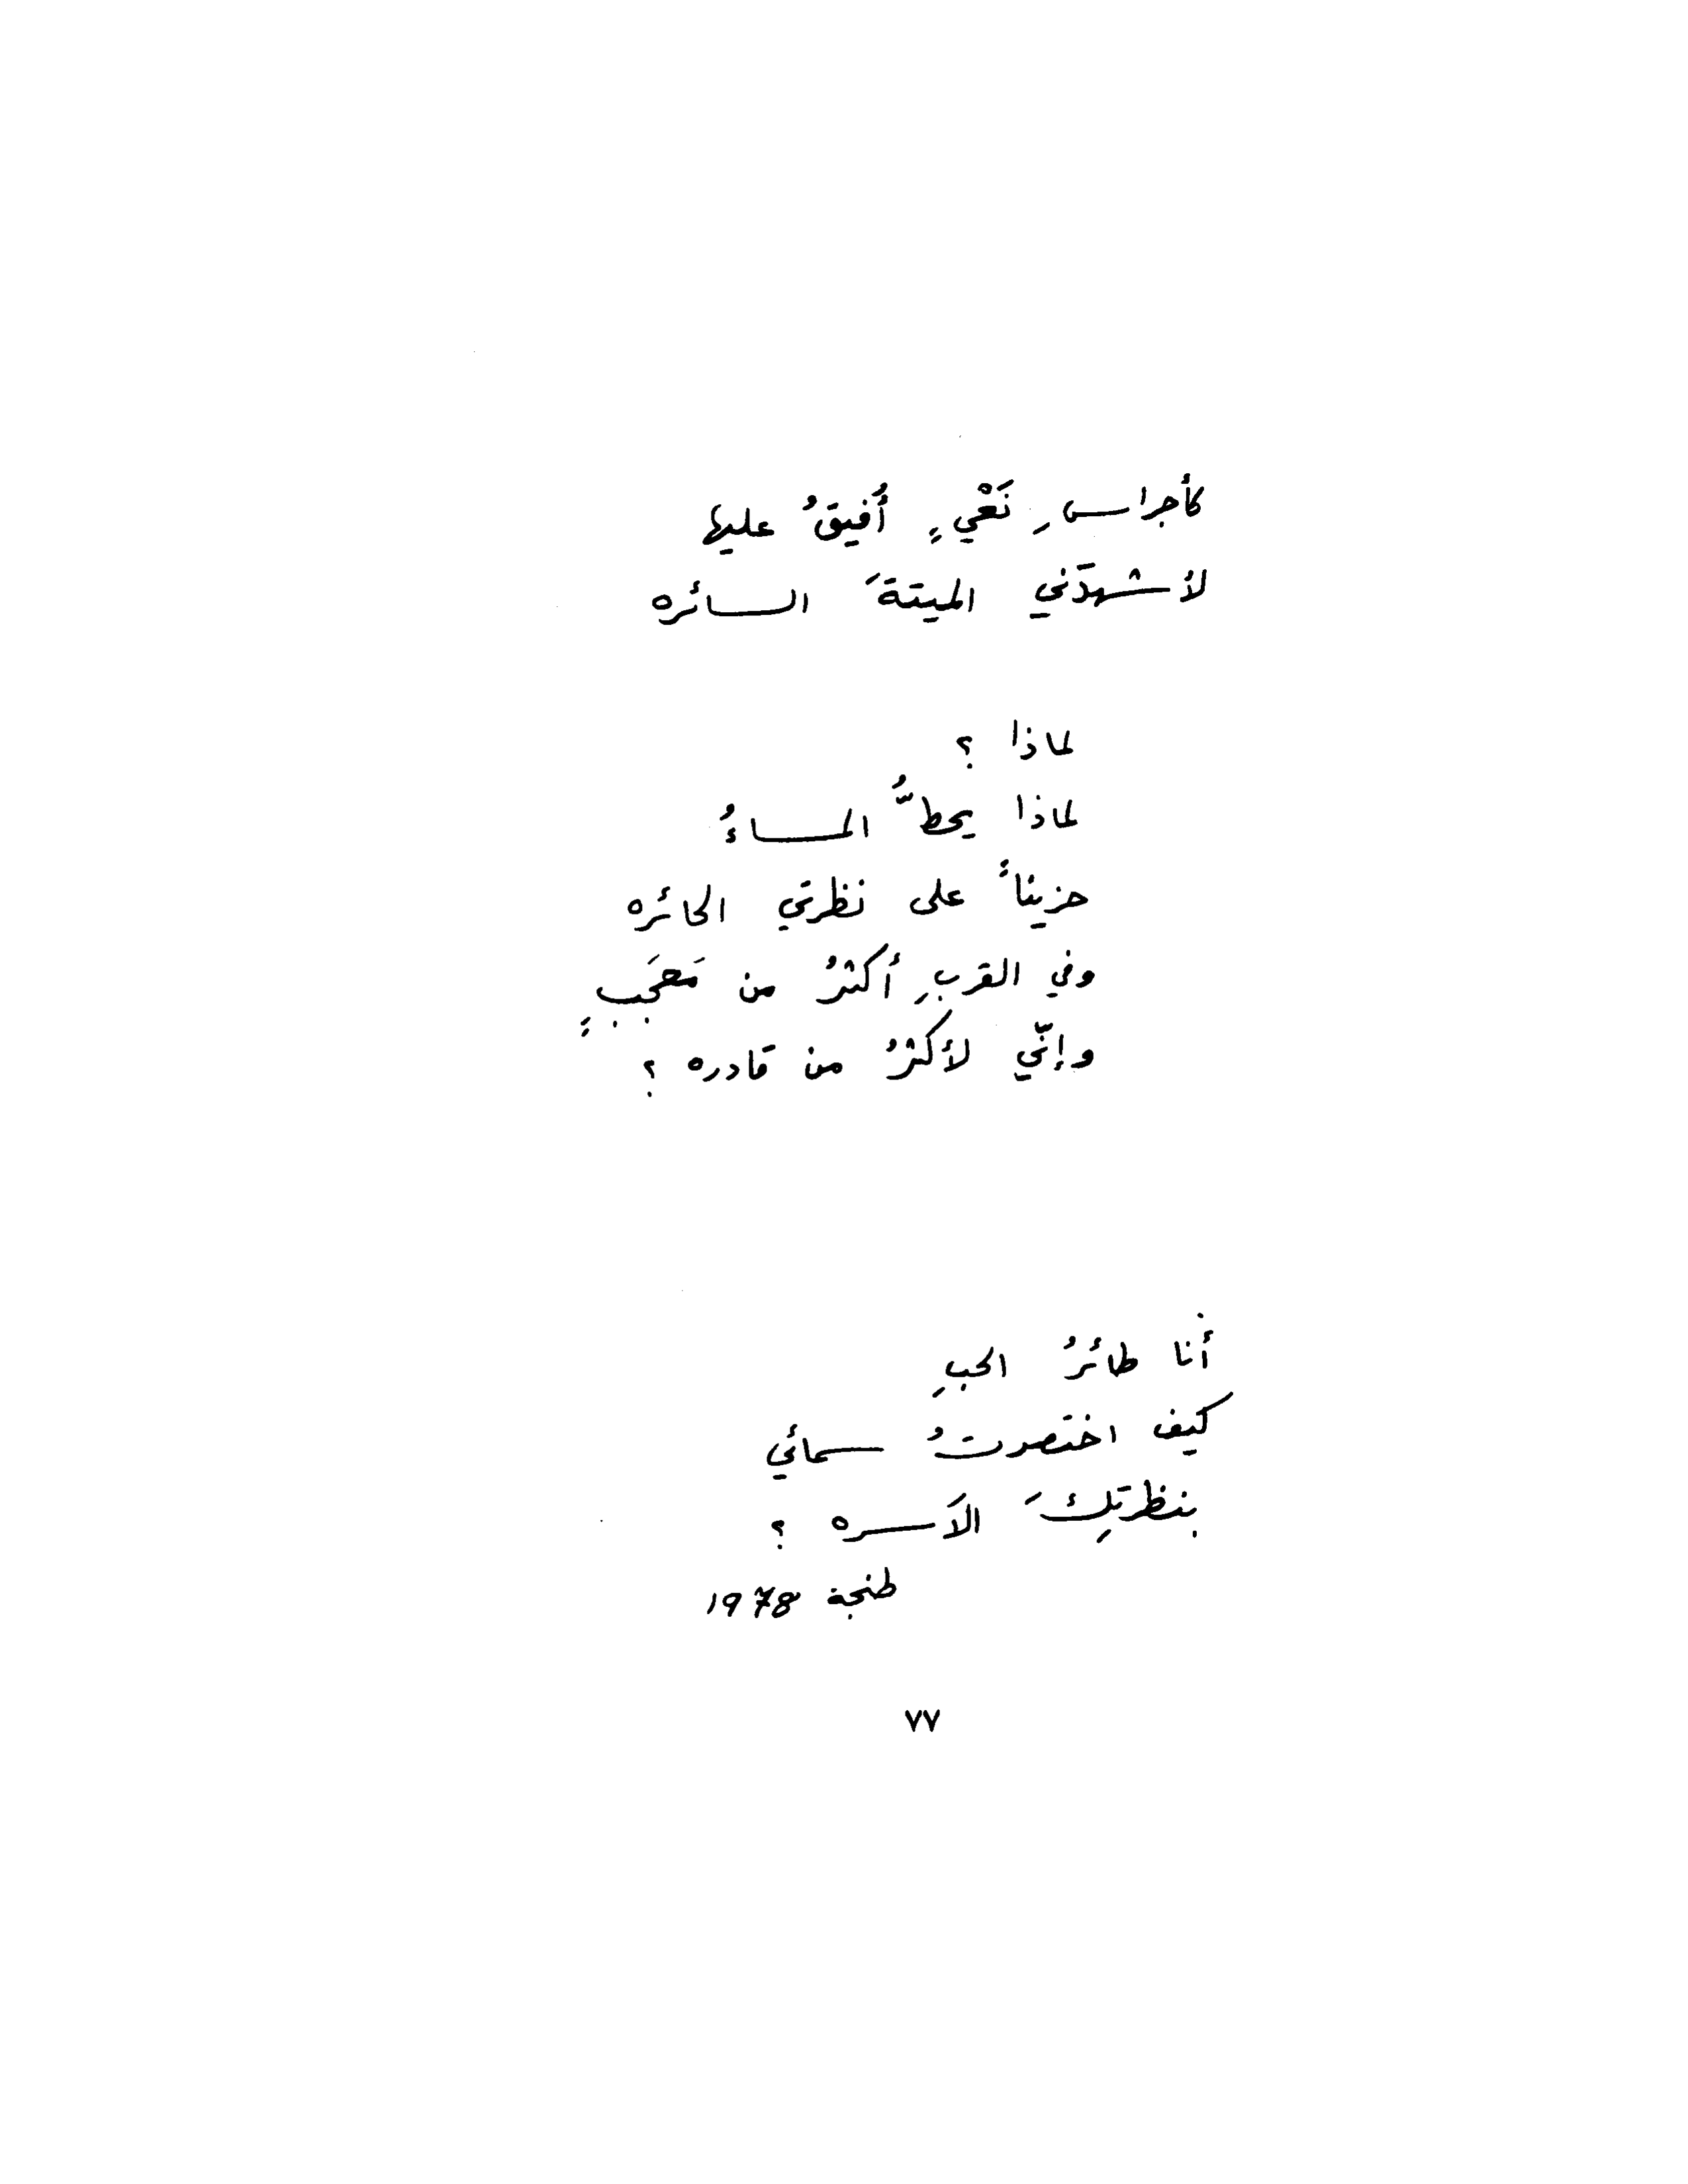 كأجراسِ نَعْيٍ أُفيقُ عليها
لأشهدَني الميتةَ السائره
لماذا ؟
لماذا يحطُّ المساءُ
حزيناً على نظرتي الحائره
وفي القربِ أكثرُ من مَعجَبٍ
وإنّي لأكثرُ من قادره ؟
أنا طائرُ الحبِ
كيف اختصرتُ سمائي
بنظرتِكَ الآسره ؟
طنجة 1978
٧٧